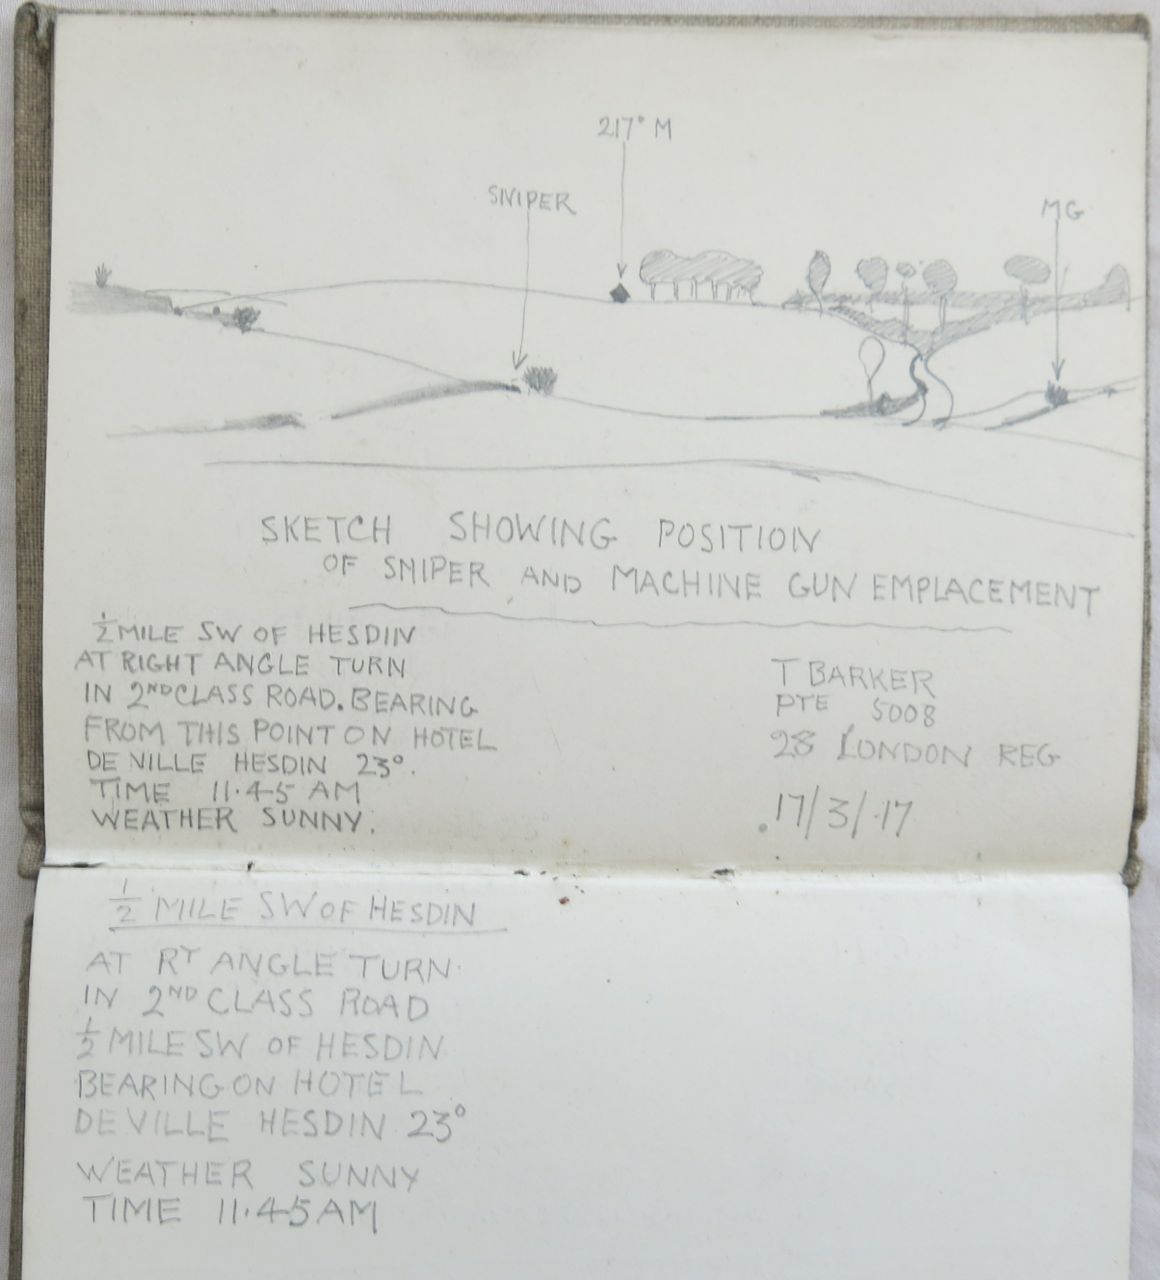 217° M
SNIPER
MG
SKETCH SHOWING POSITION
OF SNIPER AND MACHINE GUN EMPLACEMENT
½ MILE SW OF HESDIN
AT RIGHT ANGLE TURN
IN 2ND CLASS ROAD. BEARING
FROM THIS POINT ON HOTEL
DE VILLE HESDIN 23°.
TIME 11·45 AM
WEATHER SUNNY.
T BARKER
PTE 5008
28 LONDON REG
17/3/17
½ MILE SW OF HESDIN
AT RT ANGLE TURN
IN 2ND CLASS ROAD
½ MILE SW OF HESDIN
BEARING ON HOTEL
DE VILLE HESDIN 23°
WEATHER SUNNY
TIME 11·45 AM